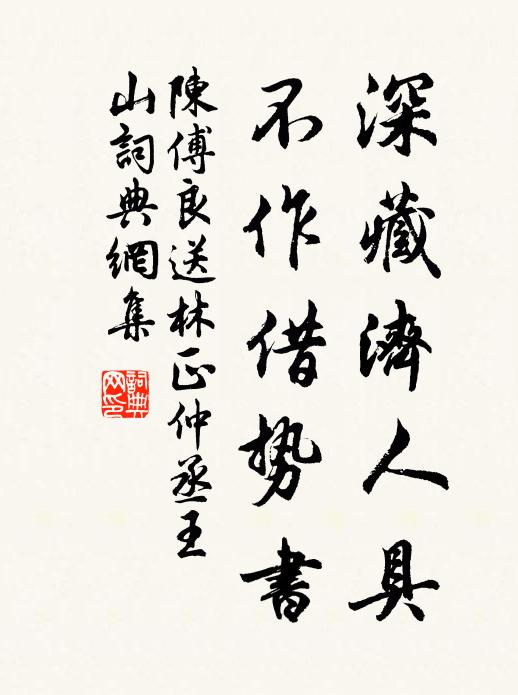 深藏濟人具
不作借勢書
陳傅良送林正仲丞王
山詞典網集
詞典
网印